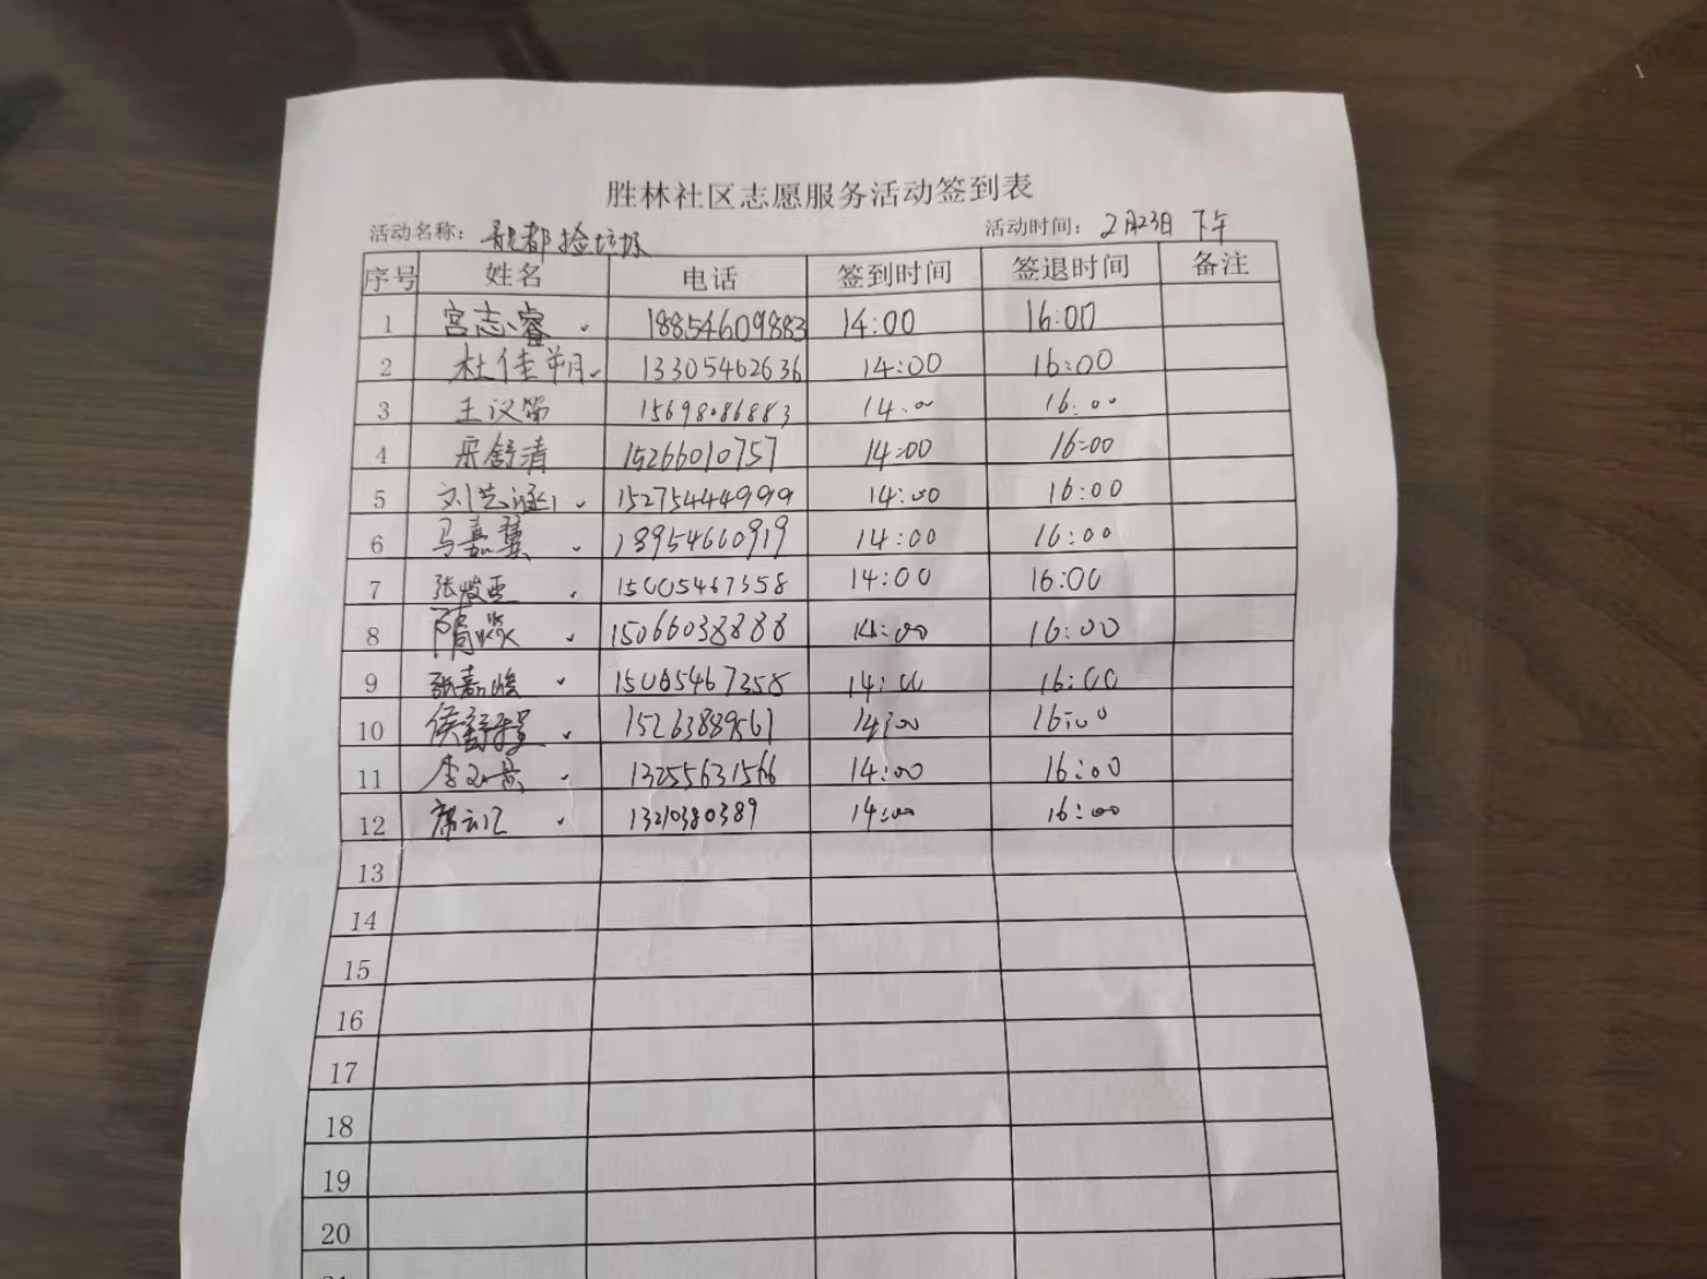 胜林社区志愿服务活动签到表
活动名称: 龍都捡垃圾 活动时间: 2月23日 下午
序号 姓名 电话 签到时间 签退时间 备注
1 宫志睿 18854609883 14:00 16:00
2 杜佳朔 13305462636 14:00 16:00
3 王汉 15698086883 14:00 16:00
4 宋舒清 15266010757 14:00 16:00
5 刘艺涵 15275444999 14:00 16:00
6 马嘉翼 18954660919 14:00 16:00
7 张峻 15005467358 14:00 16:00
8 隋焱 15066038888 14:00 16:00
9 张嘉峻 15005467358 14:00 16:00
10 侯舒 15263889561 14:00 16:00
11 李 13255631566 14:00 16:00
12 席云汇 13210380389 14:00 16:00
13
14
15
16
17
18
19
20